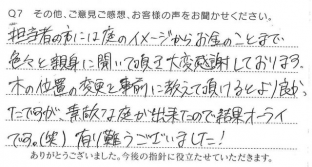 Q7 その他、ご意見ご感想、お客様の声をお聞かせください。
担当者の方には庭のイメージからお金のことまで
色々と親身に聞いて頂き大変感謝しております。
木の位置の変更を事前に教えて頂けるとより良か
たですが、素敵な庭が出来たので結果オーライ
です。(笑) 有り難うございました!
ありがとうございました。今後の指針に役立たせていただきます。